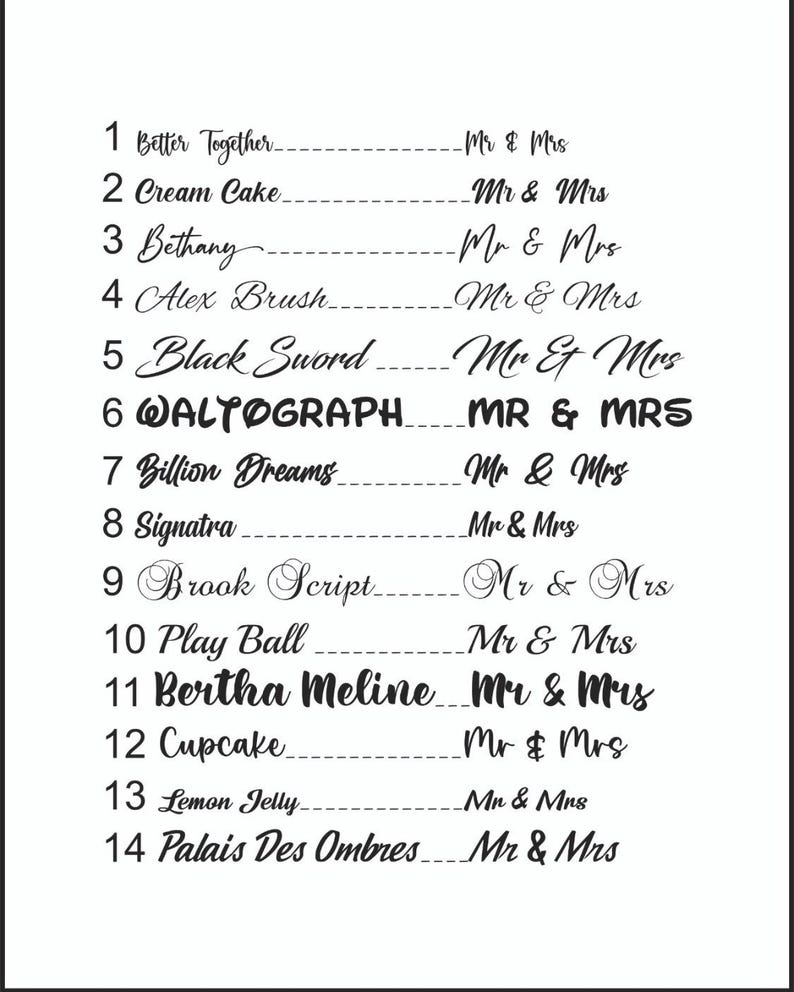 1 Better Together_______________Mr & Mrs
2 Cream Cake_______________Mr & Mrs
3 Bethany_______________Mr & Mrs
4 Alex Brush__________Mr & Mrs
5 Black Sword ______Mr & Mrs
6 WALTOGRAPH_____MR & MRS
7 Billion Dreams__________Mr & Mrs
8 Signatra __________________Mr & Mrs
9 Brook Script_______Mr & Mrs
10 Play Ball ____________Mr & Mrs
11 Bertha Meline___Mr & Mrs
12 Cupcake______________Mr & Mrs
13 Lemon Jelly_____________Mr & Mrs
14 Palais Des Ombres____Mr & Mrs